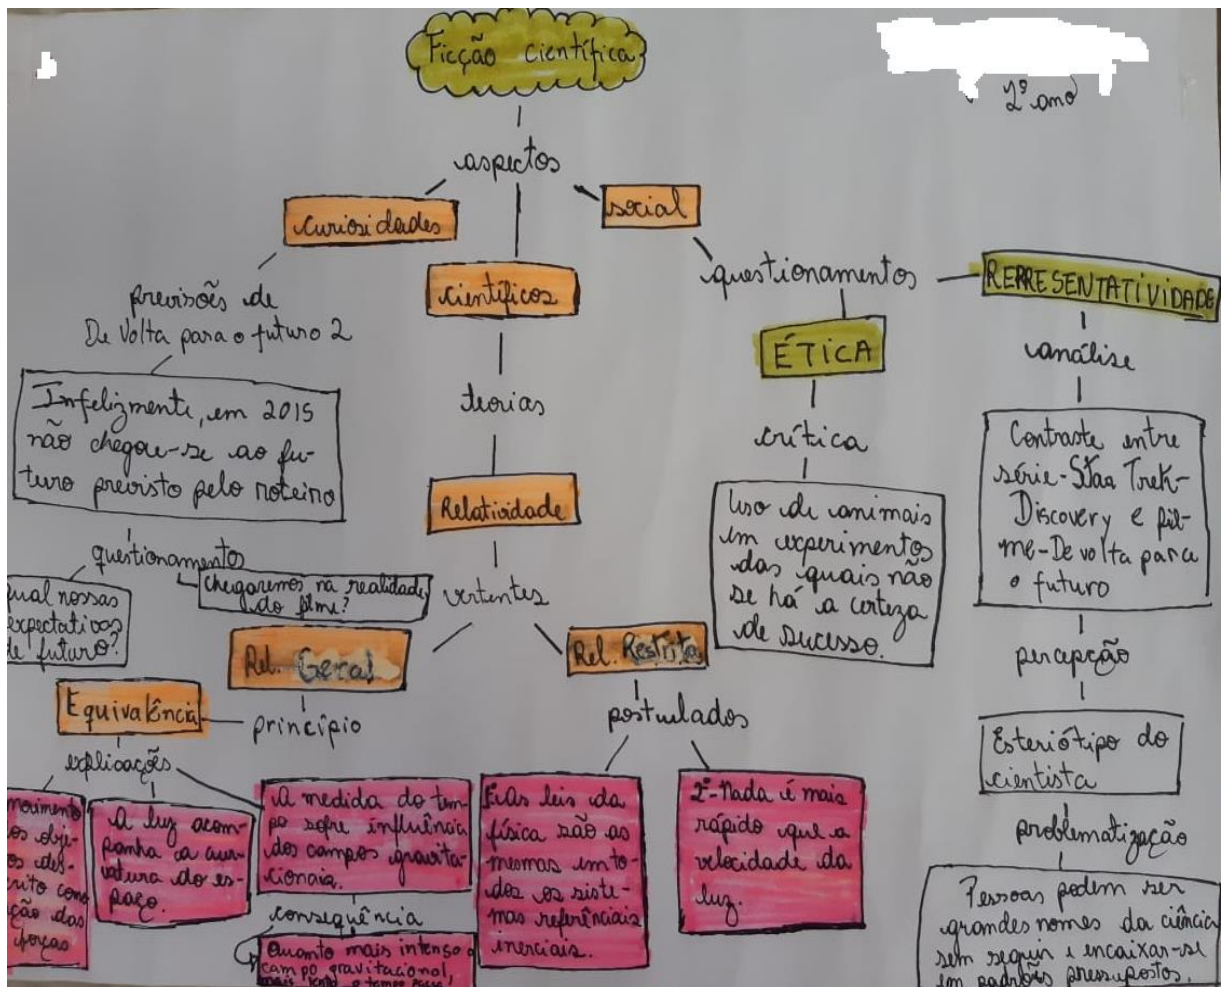 Ficção científica
2º ano
aspectos
curiosidades
social
científicos
questionamentos
REPRESENTATIVIDADE
previsões de
De Volta para o futuro 2
ÉTICA
análise
Infelizmente, em 2015
não chegou-se ao fu-
turo previsto pelo roteiro
teorias
crítica
Contraste entre
série-Star Trek-
Discovery e fil-
me-De volta para
o futuro
Relatividade
Uso de animais
em experimentos
das quais não
se há a certeza
de sucesso.
questionamentos
qual nossas
expectativas
de futuro?
chegaremos na realidade
do filme?
vertentes
Rel. Geral
Rel. Restrita
percepção
Equivalência
princípio
postulados
Esteriótipo do
cientista
explicações
movimento
os obje-
os des-
crito como
ção das
forças
A luz acom-
panha a cur-
vatura do es-
paço.
A medida do tem-
po sofre influência
dos campos gravita-
cionais.
consequência
Quanto mais intenso o
campo gravitacional,
mais lento o tempo
As leis da
física são as
mesmas em to-
dos os siste-
mas referênciais
inerciais.
2º- Nada é mais
rápido que a
velocidade da
luz.
problematização
Pessoas podem ser
grandes nomes da ciência
sem seguir e encaixar-se
em padrões pressupostos.